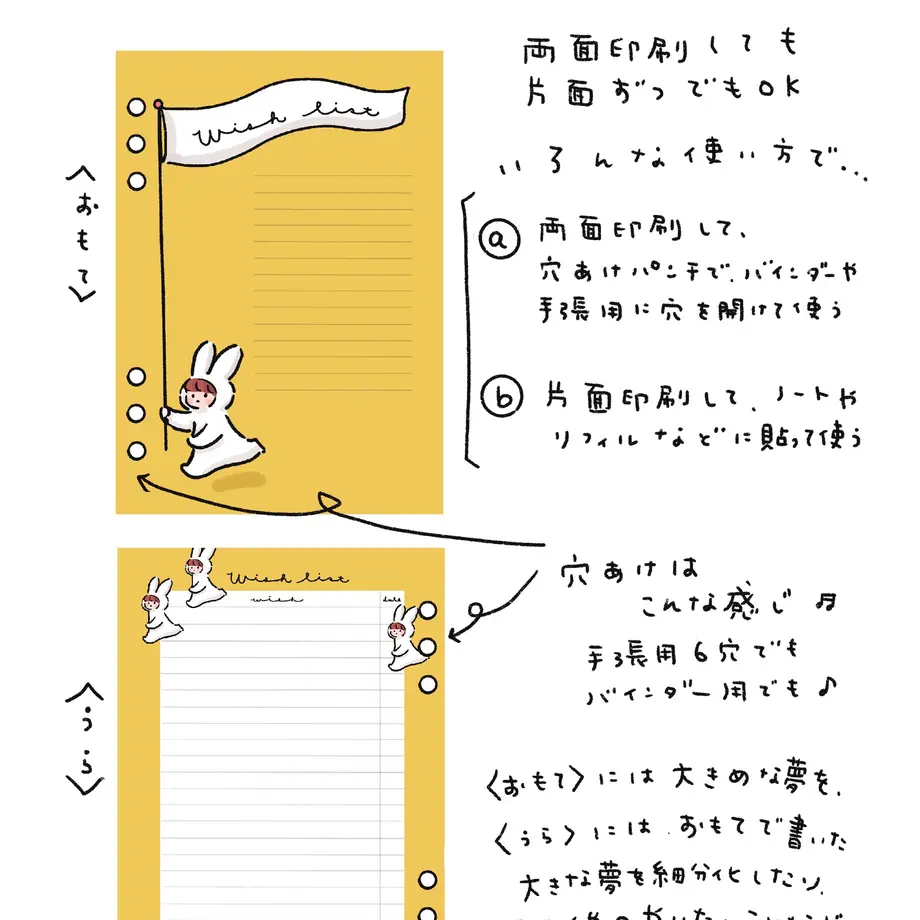 両面印刷しても
片面ずつでもOK
いろんな使い方で...
Wish list
〈おもて〉
ⓐ 両面印刷して、
穴あけパンチで、バインダーや
手張用に穴を開けて使う
ⓑ 片面印刷して、ノートや
リフィルなどに貼って使う
穴あけは
こんな感じ♬
手張用6穴でも
バインダー用でも♪
Wish list
wish
date
〈うら〉
〈おもて〉には大きめな夢を、
〈うら〉には、おもてで書いた
大きな夢を細分化したり、